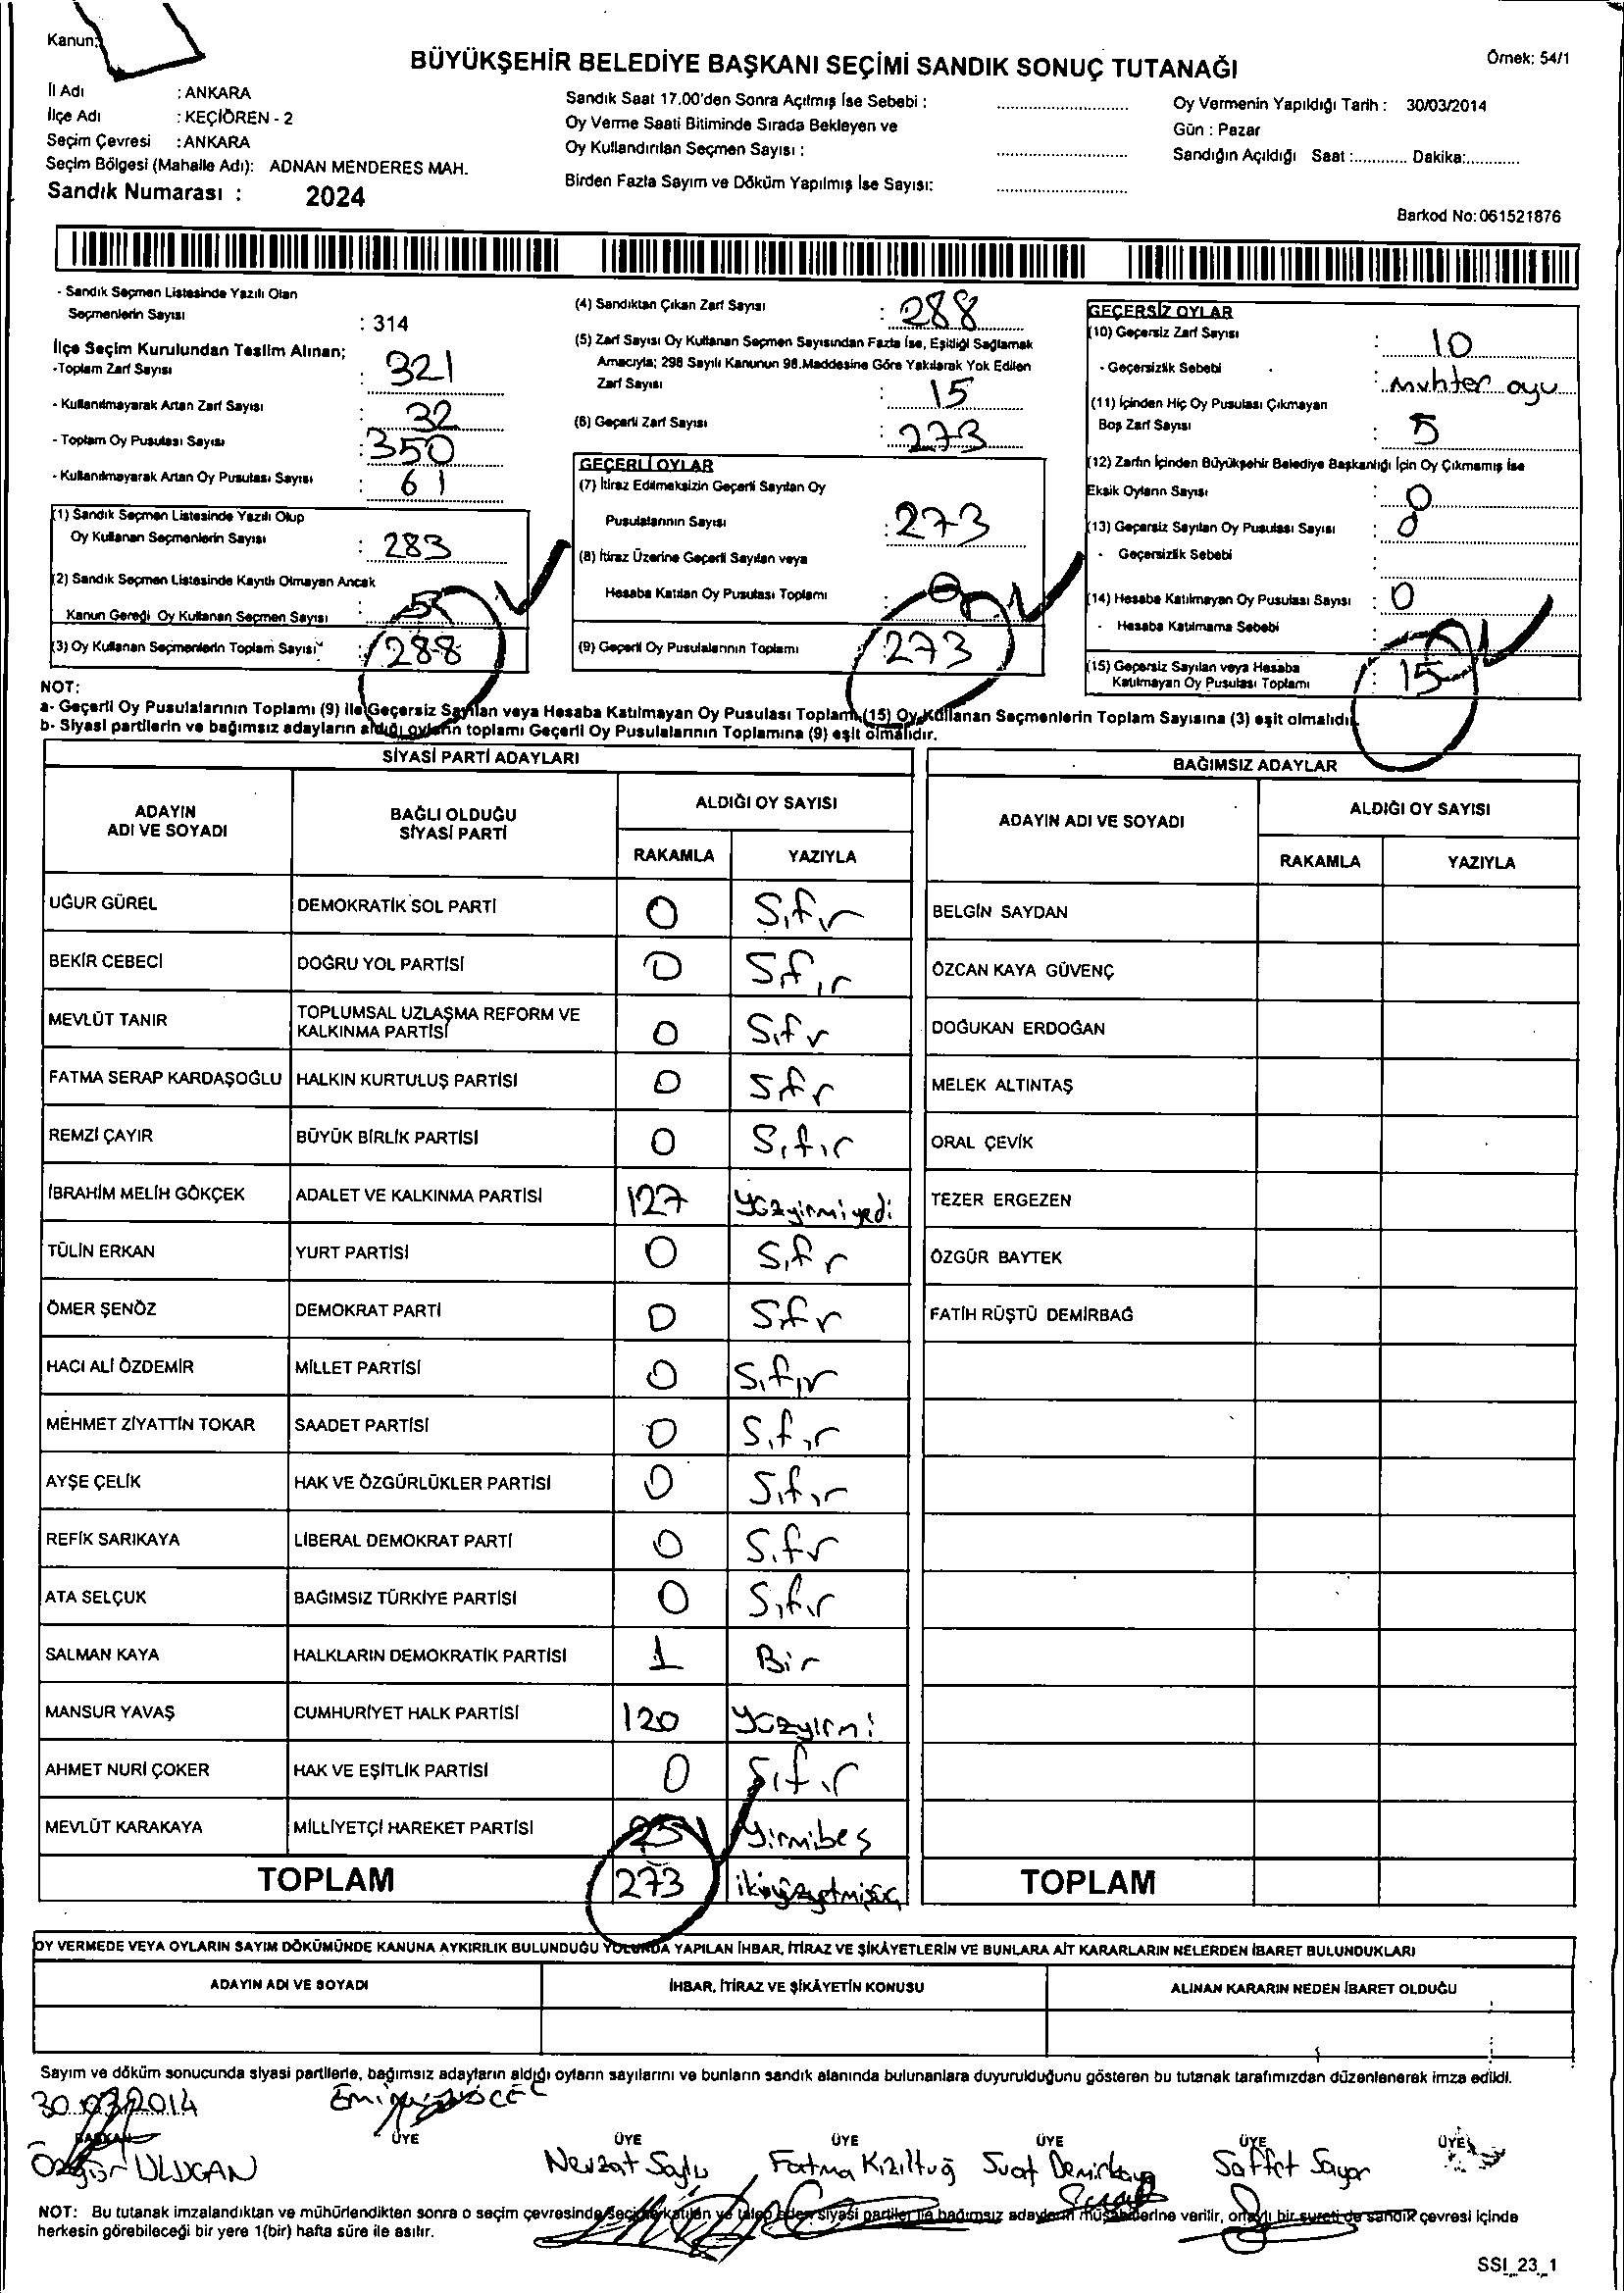 Kanun:
BÜYÜKŞEHİR BELEDİYE BAŞKANI SEÇİMİ SANDIK SONUÇ TUTANAĞI
Örnek: 54/1
İl Adı : ANKARA
İlçe Adı : KEÇİÖREN - 2
Seçim Çevresi : ANKARA
Seçim Bölgesi (Mahalle Adı): ADNAN MENDERES MAH.
Sandık Numarası : 2024
Sandık Saat 17.00'den Sonra Açılmış İse Sebebi :
Oy Verme Saati Bitiminde Sırada Bekleyen ve
Oy Kullandırılan Seçmen Sayısı :
Birden Fazla Sayım ve Döküm Yapılmış İse Sayısı:
Oy Vermenin Yapıldığı Tarih : 30/03/2014
Gün : Pazar
Sandığın Açıldığı Saat :............ Dakika:............
Barkod No: 061521876
- Sandık Seçmen Listesinde Yazılı Olan
Seçmenlerin Sayısı : 314
İlçe Seçim Kurulundan Teslim Alınan;
-Toplam Zarf Sayısı : 321
- Kullanılmayarak Artan Zarf Sayısı : 32
- Toplam Oy Pusulası Sayısı : 350
- Kullanılmayarak Artan Oy Pusulası Sayısı : 61
(1) Sandık Seçmen Listesinde Yazılı Olup
Oy Kullanan Seçmenlerin Sayısı : 283
(2) Sandık Seçmen Listesinde Kayıtlı Olmayan Ancak
Kanun Gereği Oy Kullanan Seçmen Sayısı : 5
(3) Oy Kullanan Seçmenlerin Toplam Sayısı : 288
(4) Sandıktan Çıkan Zarf Sayısı : 288
(5) Zarf Sayısı Oy Kullanan Seçmen Sayısından Fazla İse, Eşitliği Sağlamak
Amacıyla; 298 Sayılı Kanunun 98.Maddesine Göre Yakılarak Yok Edilen
Zarf Sayısı : 15
(6) Geçerli Zarf Sayısı : 273
GEÇERLİ OYLAR
(7) İtiraz Edilmeksizin Geçerli Sayılan Oy
Pusulalarının Sayısı : 273
(8) İtiraz Üzerine Geçerli Sayılan veya
Hesaba Katılan Oy Pusulası Toplamı : 0
(9) Geçerli Oy Pusulalarının Toplamı : 273
GEÇERSİZ OYLAR
(10) Geçersiz Zarf Sayısı : 10
- Geçersizlik Sebebi : muhter oyu
(11) İçinden Hiç Oy Pusulası Çıkmayan
Boş Zarf Sayısı : 5
(12) Zarfın İçinden Büyükşehir Belediye Başkanlığı İçin Oy Çıkmamış İse
Eksik Oyların Sayısı : 0
(13) Geçersiz Sayılan Oy Pusulası Sayısı : 0
- Geçersizlik Sebebi
(14) Hesaba Katılmayan Oy Pusulası Sayısı : 0
- Hesaba Katılmama Sebebi
(15) Geçersiz Sayılan veya Hesaba
Katılmayan Oy Pusulası Toplamı : 15
NOT:
a- Geçerli Oy Pusulalarının Toplamı (9) ile Geçersiz Sayılan veya Hesaba Katılmayan Oy Pusulası Toplamı (15) Oy Kullanan Seçmenlerin Toplam Sayısına (3) eşit olmalıdır.
b- Siyasi partilerin ve bağımsız adayların aldığı oyların toplamı Geçerli Oy Pusulalarının Toplamına (9) eşit olmalıdır.
SİYASİ PARTİ ADAYLARI
ADAYIN ADI VE SOYADI
BAĞLI OLDUĞU SİYASİ PARTİ
ALDIĞI OY SAYISI
RAKAMLA YAZIYLA
UĞUR GÜREL DEMOKRATİK SOL PARTİ 0 Sıfır
BEKİR CEBECİ DOĞRU YOL PARTİSİ 0 Sıfır
MEVLÜT TANIR TOPLUMSAL UZLAŞMA REFORM VE KALKINMA PARTİSİ 0 Sıfır
FATMA SERAP KARDAŞOĞLU HALKIN KURTULUŞ PARTİSİ 0 Sıfır
REMZİ ÇAYIR BÜYÜK BİRLİK PARTİSİ 0 Sıfır
İBRAHİM MELİH GÖKÇEK ADALET VE KALKINMA PARTİSİ 127 Yüzyirmiyedi
TÜLİN ERKAN YURT PARTİSİ 0 Sıfır
ÖMER ŞENÖZ DEMOKRAT PARTİ 0 Sıfır
HACI ALİ ÖZDEMİR MİLLET PARTİSİ 0 Sıfır
MEHMET ZİYATTİN TOKAR SAADET PARTİSİ 0 Sıfır
AYŞE ÇELİK HAK VE ÖZGÜRLÜKLER PARTİSİ 0 Sıfır
REFİK SARIKAYA LİBERAL DEMOKRAT PARTİ 0 Sıfır
ATA SELÇUK BAĞIMSIZ TÜRKİYE PARTİSİ 0 Sıfır
SALMAN KAYA HALKLARIN DEMOKRATİK PARTİSİ 1 Bir
MANSUR YAVAŞ CUMHURİYET HALK PARTİSİ 120 Yüzyirmi
AHMET NURİ ÇOKER HAK VE EŞİTLİK PARTİSİ 0 Sıfır
MEVLÜT KARAKAYA MİLLİYETÇİ HAREKET PARTİSİ 25 Yirmibeş
TOPLAM 273 ikiyüzyetmişüç
BAĞIMSIZ ADAYLAR
ADAYIN ADI VE SOYADI
ALDIĞI OY SAYISI
RAKAMLA YAZIYLA
BELGİN SAYDAN
ÖZCAN KAYA GÜVENÇ
DOĞUKAN ERDOĞAN
MELEK ALTINTAŞ
ORAL ÇEVİK
TEZER ERGEZEN
ÖZGÜR BAYTEK
FATİH RÜŞTÜ DEMİRBAĞ
TOPLAM
OY VERMEDE VEYA OYLARIN SAYIM DÖKÜMÜNDE KANUNA AYKIRILIK BULUNDUĞU YOLUNDA YAPILAN İHBAR, İTİRAZ VE ŞİKÂYETLERİN VE BUNLARA AİT KARARLARIN NELERDEN İBARET BULUNDUKLARI
ADAYIN ADI VE SOYADI
İHBAR, İTİRAZ VE ŞİKÂYETİN KONUSU
ALINAN KARARIN NEDEN İBARET OLDUĞU
Sayım ve döküm sonucunda siyasi partilerle, bağımsız adayların aldığı oyların sayılarını ve bunların sandık alanında bulunanlara duyurulduğunu gösteren bu tutanak tarafımızdan düzenlenerek imza edildi.
30.03.2014
BAŞKAN ÜYE ÜYE ÜYE ÜYE ÜYE ÜYE
Özgür ULUCAN Nevzat Saylı Fatma Kızıltuğ Suat Demirkaya Saffet Sayar
NOT: Bu tutanak imzalandıktan ve mühürlendikten sonra o seçim çevresinde seçime katılan ve talep eden siyasi partiler ile bağımsız adayların müşahitlerine verilir, onaylı bir sureti de sandık çevresi içinde
herkesin görebileceği bir yere 1(bir) hafta süre ile asılır.
SSI_23_1